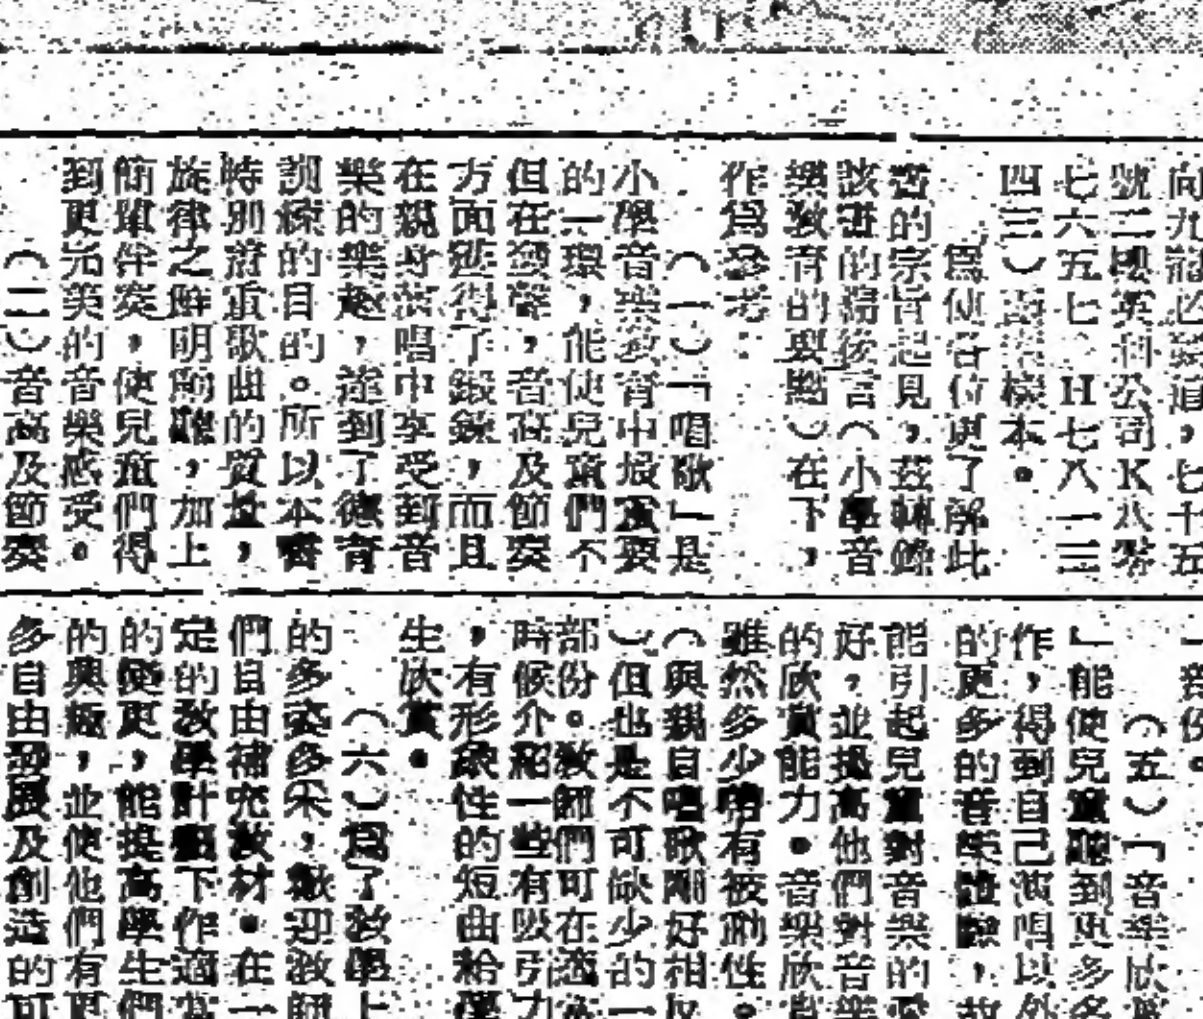 向九龍
號二樓英利公司K八零
七六五七、H七八一三
四三）索樣本。
爲使各位更了解此
書的宗旨起見，茲轉錄
該書的編後言（小學音
樂教育的要點）在下，
作爲參考
（一）「唱歌」是
小學音樂教育中最重要
的一環，能使兒童們不
但在發聲，音高及節奏
方面獲得了鍛鍊，而且
在親身演唱中享受到音
樂的樂趣，達到了德育
訓練的目的。所以本書
特別着重歌曲的質量，
旋律之鮮明動聽，加上
簡單伴奏，使兒童們得
到更完美的音樂感受。
（二）音高及節奏
一部份。
（五）「音樂欣賞
」能使兒童聽到更多名
作，得到自己演唱以外
的更多的音樂體驗，故
能引起兒童對音樂的愛
好，並提高他們對音樂
的欣賞能力。音樂欣賞
雖然多少帶有被動性。
（與親自唱歌剛好相反
）但也是不可缺少的一
部份。教師們可在適當
時候介紹一些有吸引力
，有形象性的短曲給學
生欣賞。
（六）爲了教學上
的多姿多采，歡迎教師
們自由補充教材。在一
定的教學計劃下作適當
的變更，能提高學生們
的興趣，並使他們有更
多自由發展及創造的可